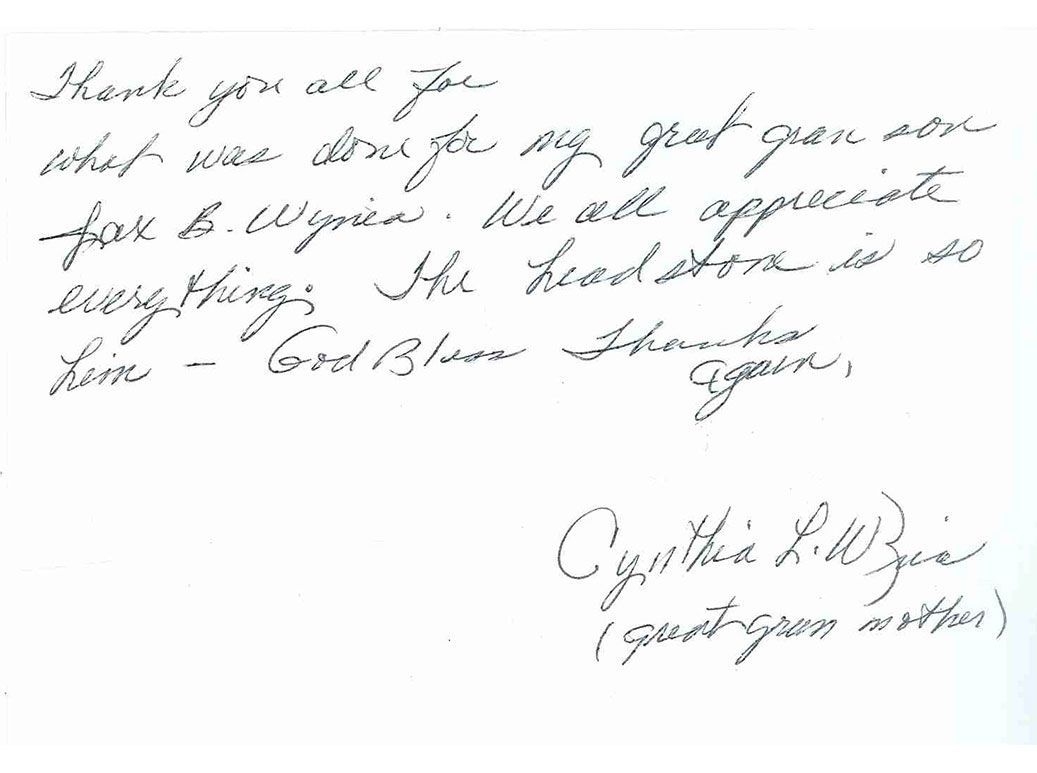 Thank you all for
what was done for my great gran son
Jax B. Wynia. We all appreciate
everything. The headstone is so
him - God Bless Thanks
again,
Cynthia L. Wynia
(great gran mother)